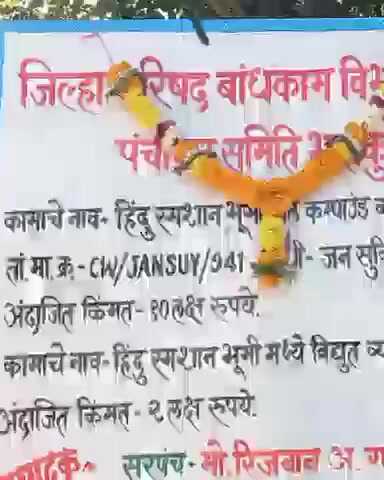 जिल्हा परिषद बांधकाम
पंचायत समिति
कामाचे नाव- हिंदु स्मशान कम्पाउंड
तां.मा.क्र.- CW/JANSUV/941 - जन
अंदाजित किंमत- १०लक्ष रुपये.
कामाचे नाव- हिंदु स्मशान भूमी मध्ये विद्युत
अंदाजित किंमत- २ लक्ष रुपये.
सरपंच- मो. रिजवान अ.